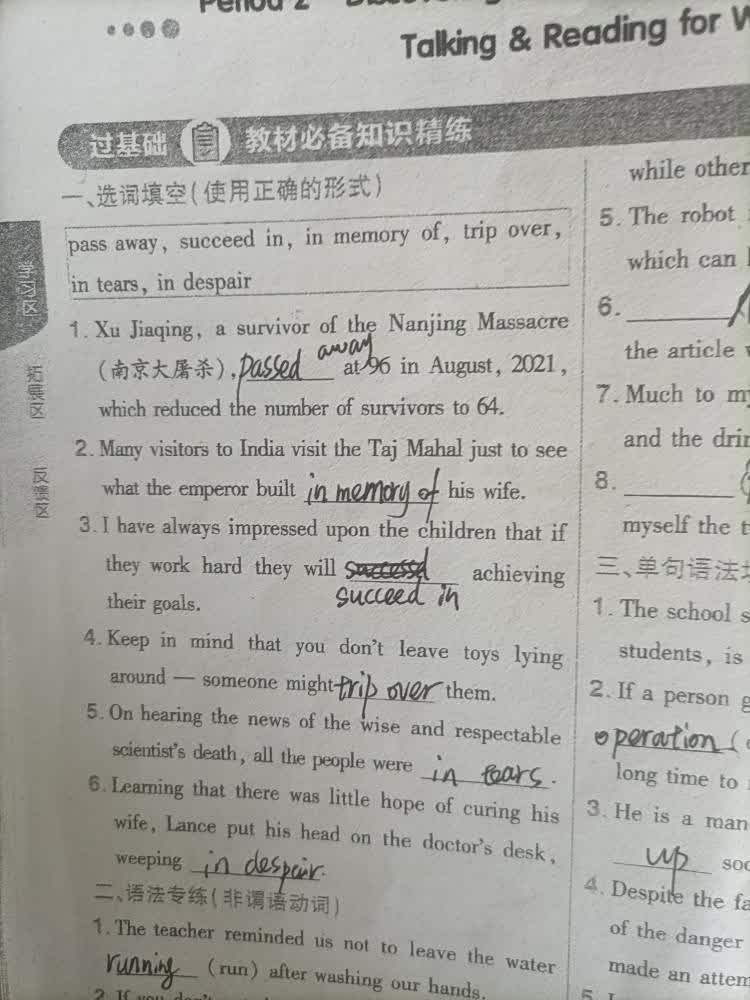 Talking & Reading for W
过基础 教材必备知识精练
一、选词填空(使用正确的形式)
pass away, succeed in, in memory of, trip over,
in tears, in despair
1. Xu Jiaqing, a survivor of the Nanjing Massacre
(南京大屠杀), passed away at 96 in August, 2021,
which reduced the number of survivors to 64.
2. Many visitors to India visit the Taj Mahal just to see
what the emperor built in memory of his wife.
3. I have always impressed upon the children that if
they work hard they will achieving
succeed in
their goals.
4. Keep in mind that you don't leave toys lying
around — someone might trip over them.
5. On hearing the news of the wise and respectable
scientist's death, all the people were in tears.
6. Learning that there was little hope of curing his
wife, Lance put his head on the doctor's desk,
weeping in despair.
二、语法专练(非谓语动词)
1. The teacher reminded us not to leave the water
running (run) after washing our hands.
学习区
拓展区
反馈区
while other
5. The robot
which can
6.
the article
7. Much to my
and the
8.
myself the
三、单句语法
1. The school
students, is
2. If a person
operation (
long time to
3. He is a man
up
4. Despite the
of the danger
made an